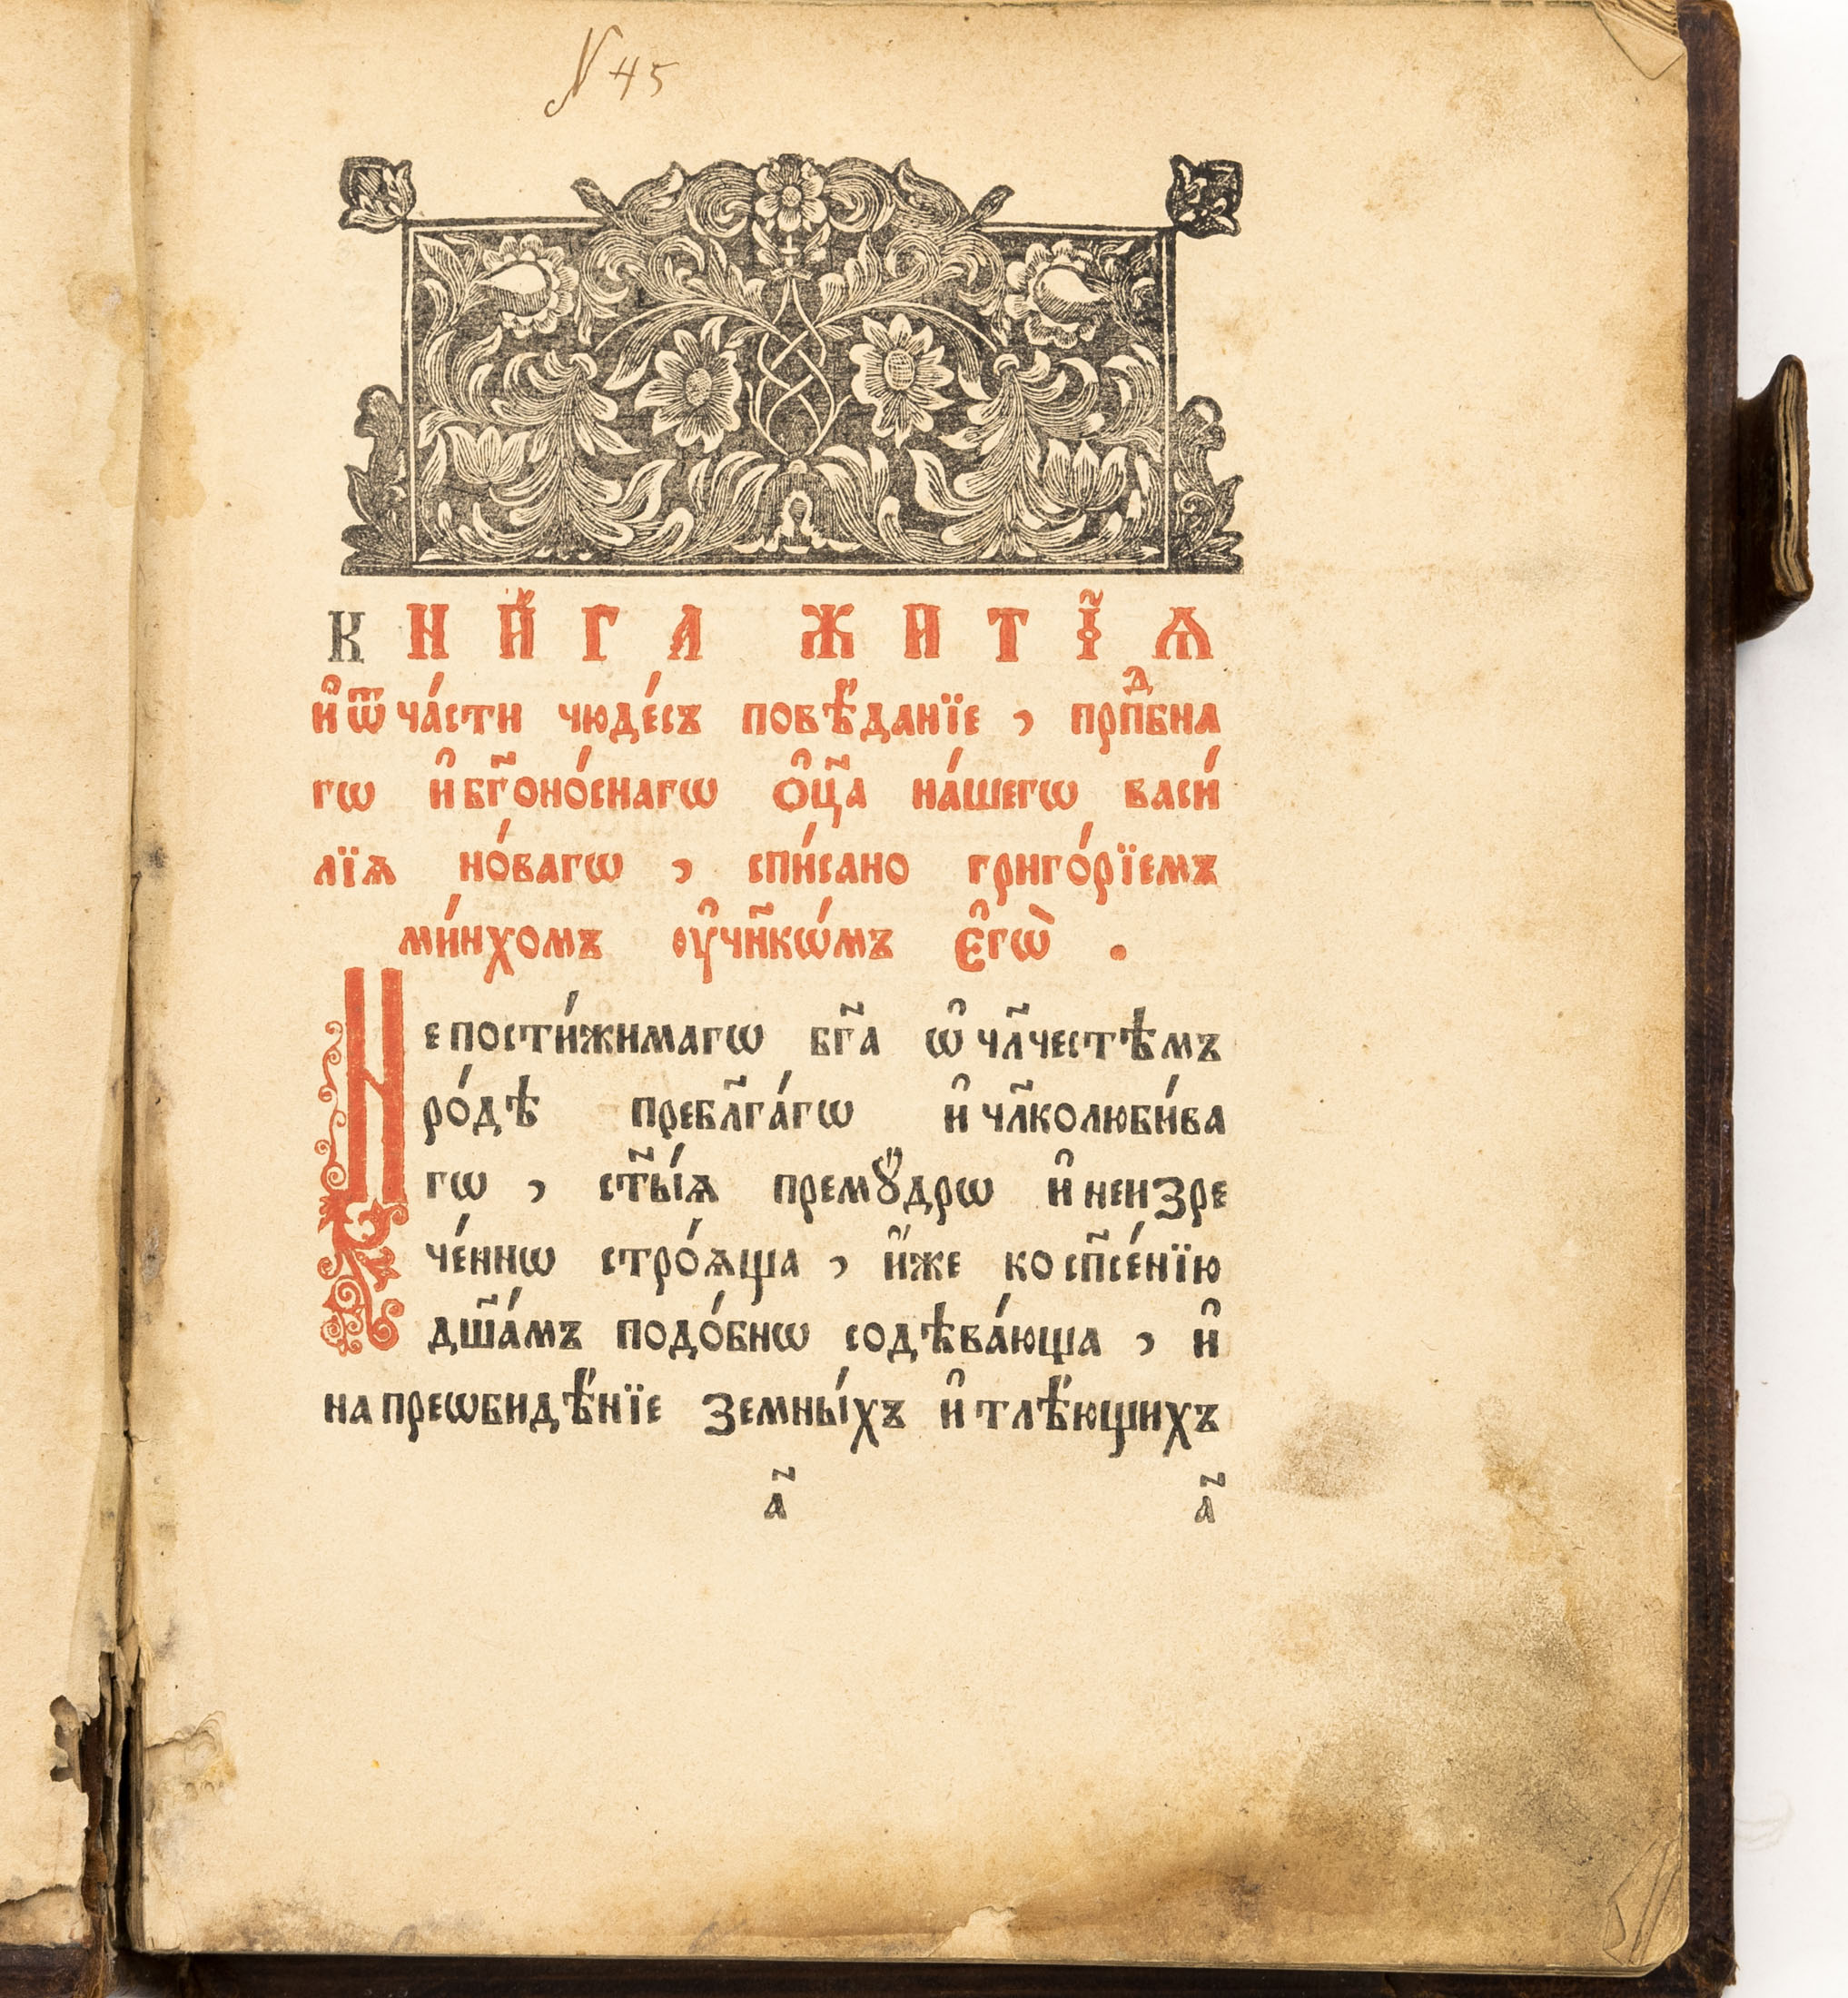 N 45
КНИ҆́ГА ЖИТІ̃Ѧ
и҆ ѿ ча́сти чюде́съ повѣ́данїе , прпⷣбна
гѡ и҆ бг҃оно́снагѡ ѻ҆ц҃а на́шегѡ васи́
лїѧ но́вагѡ , спи́сано григо́рїемъ
ми́нхомъ оу҆чн҃кѡ́мъ є҆гѡ̀ .
Непости́жимагѡ бг҃а ѡ҆ чл҃честѣмъ
ро́дѣ пребл҃га́гѡ и҆ чл҃колюби́ва
гѡ , ст҃ы́ѧ премꙋ́дрѡ и҆ неизре
че́ннѡ стро́ѧща , и҆́же ко сп҃се́нїю
дш҃а́мъ подо́бнѡ содѣва́юща , и҆
на преѡбидѣ́нїе земны́хъ и҆ тлѣ́ющихъ
а҃ а҃